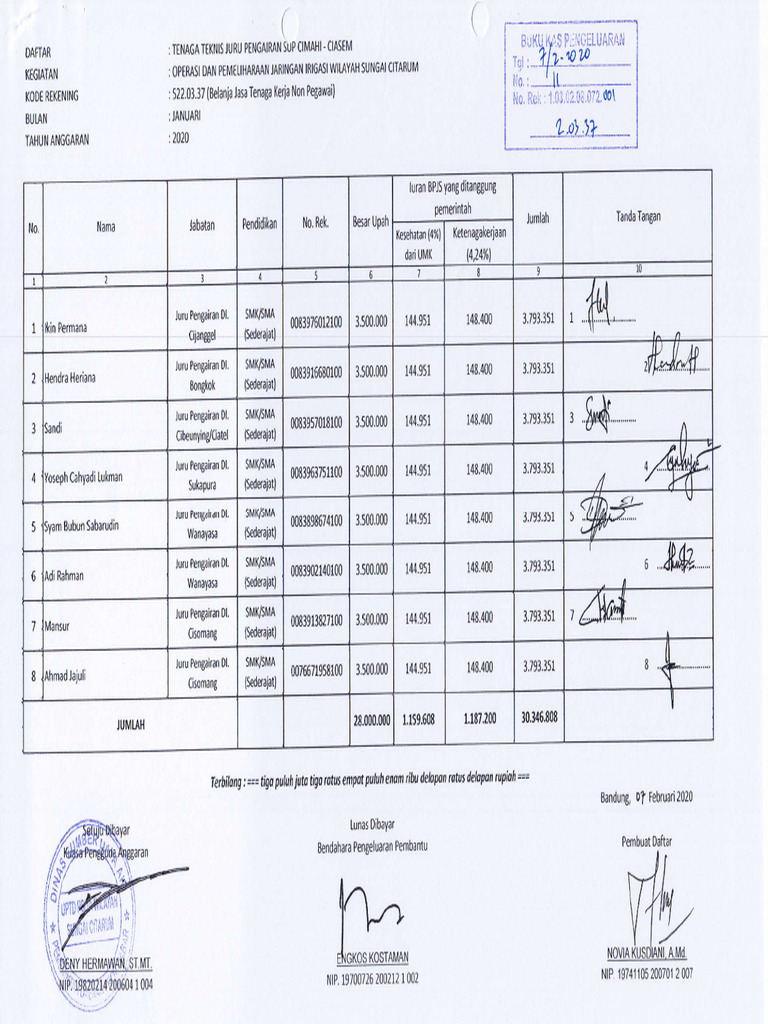 DAFTAR : TENAGA TEKNIS JURU PENGAIRAN SuP CIMAHI - CIASEM
KEGIATAN : OPERASI DAN PEMELIHARAAN JARINGAN IRIGASI WILAYAH SUNGAI CITARUM
KODE REKENING : 522.03.37 (Belanja Jasa Tenaga Kerja Non Pegawai)
BULAN : JANUARI
TAHUN ANGGARAN : 2020
BUKU KAS PENGELUARAN
Tgl : 7/2-2020
No. : 11
No. Rek : 1.03.02.08.072.001
2.03.37
No. Nama Jabatan Pendidikan No. Rek. Besar Upah Iuran BPJS yang ditanggung pemerintah Jumlah Tanda Tangan
Kesehatan (4%) dari UMK Ketenagakerjaan (4,24%)
1 2 3 4 5 6 7 8 9 10
1 Ikin Permana Juru Pengairan DI. Cijanggel SMK/SMA (Sederajat) 0083976012100 3.500.000 144.951 148.400 3.793.351 1
2 Hendra Heriana Juru Pengairan DI. Bongkok SMK/SMA (Sederajat) 0083916680100 3.500.000 144.951 148.400 3.793.351 2
3 Sandi Juru Pengairan DI. Cibeunying/Ciatel SMK/SMA (Sederajat) 0083957018100 3.500.000 144.951 148.400 3.793.351 3
4 Yoseph Cahyadi Lukman Juru Pengairan DI. Sukapura SMK/SMA (Sederajat) 0083963751100 3.500.000 144.951 148.400 3.793.351 4
5 Syam Bubun Sabarudin Juru Pengairan DI. Wanayasa SMK/SMA (Sederajat) 0083898674100 3.500.000 144.951 148.400 3.793.351 5
6 Adi Rahman Juru Pengairan DI. Wanayasa SMK/SMA (Sederajat) 0083902140100 3.500.000 144.951 148.400 3.793.351 6
7 Mansur Juru Pengairan DI. Cisomang SMK/SMA (Sederajat) 0083913827100 3.500.000 144.951 148.400 3.793.351 7
8 Ahmad Jajuli Juru Pengairan DI. Cisomang SMK/SMA (Sederajat) 0076671958100 3.500.000 144.951 148.400 3.793.351 8
JUMLAH 28.000.000 1.159.608 1.187.200 30.346.808
Terbilang : === tiga puluh juta tiga ratus empat puluh enam ribu delapan ratus delapan rupiah ===
Bandung, 07 Februari 2020
Setuju Dibayar
Kuasa Pengguna Anggaran
Lunas Dibayar
Bendahara Pengeluaran Pembantu
Pembuat Daftar
DINAS SUMBER DAYA AIR
UPTD WILAYAH
SUNGAI CITARUM
DENY HERMAWAN, ST.MT.
NIP. 19820214 200604 1 004
ENGKOS KOSTAMAN
NIP. 19700726 200212 1 002
NOVIA KUSDIANI, A.Md.
NIP. 19741105 200701 2 007